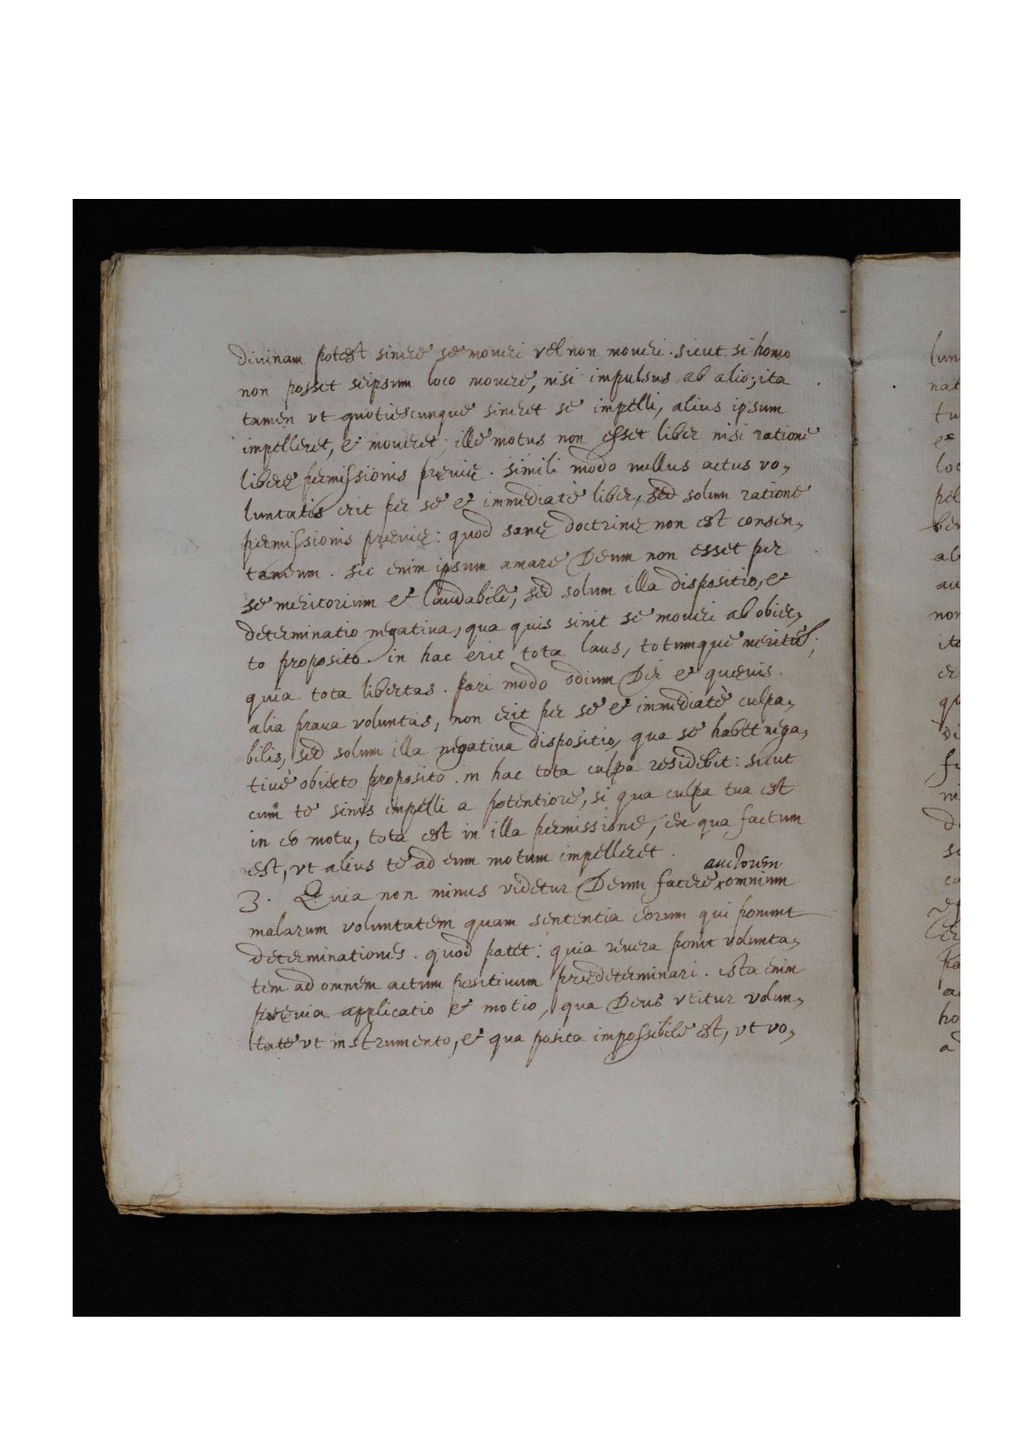 diuinam potest sinere se moueri vel non moueri. sicut si homo
non posset seipsum loco mouere, nisi impulsus ab alio; ita
tamen vt quotiescunque sineret se impelli, alius ipsum
impelleret, & moueret; ille motus non esset liber nisi ratione
liberę permissionis pręuię. simili modo nullus actus vo,
luntatis erit per se & immediatè liber, sed solum ratione
permissionis pręuię: quod sanę doctrinę non est consen,
taneum. sic enim ipsum amare Deum non esset per
se meritorium & laudabile, sed solum illa dispositio, &
determinatio negatiua, qua quis sinit se moueri ab obiec,
to proposito in hac erit tota laus, totumque meritū;
quia tota libertas. pari modo odium Dei & quęuis
alia praua voluntas, non erit per se & immediatè culpa,
bilis, sed solum illa negatiua dispositio, qua se habet nega,
tiuè obiecto proposito. in hac tota culpa residebit: sicut
cum te sinis impelli a potentiore, si qua culpa tua est
in eo motu, tota est in illa permissione, ex qua factum
est, vt alius te ad eum motum impelleret.
auctorem
3. Quia non minus videtur Deum facere omnium
malarum voluntatem quam sententia eorum qui ponunt
determinationes. quod patet: quia reuera ponit volunta,
tem ad omnem actum positiuum prędeterminari. ista enim
pręuia applicatio & motio, qua Deus vtitur volun,
tate vt instrumento, & qua posita impossibile est, vt vo,